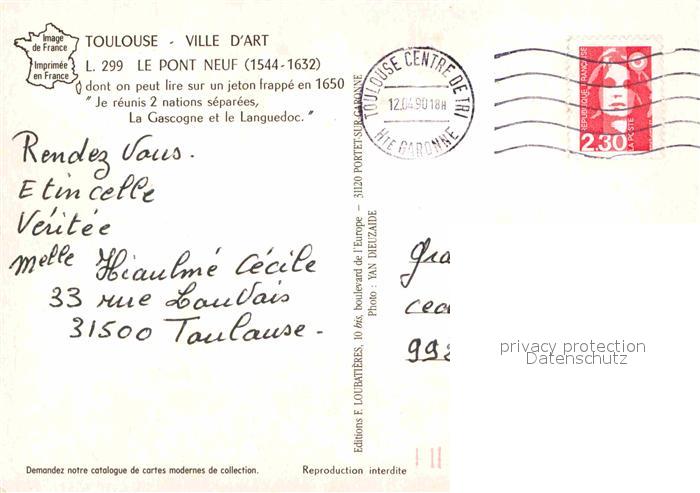 Image
de France
Imprimée
en France
TOULOUSE - VILLE D'ART
L. 299 LE PONT NEUF (1544-1632)
dont on peut lire sur un jeton frappé en 1650
"Je réunis 2 nations séparées,
La Gascogne et le Languedoc."
Rendez Vous.
Etincelle
Véritée
Melle Hiaulmé Cécile
33 rue
31500 Toulouse.
Demandez notre catalogue de cartes modernes de collection.
Reproduction interdite
Editions F. LOUBATIÈRES, 10 bis, boulevard de l'Europe - 31120 PORTET-SUR-GARONNE
Photo : YAN DIEUZAIDE
TOULOUSE CENTRE DE TRI
12.04.90 18H
Hte GARONNE
REPUBLIQUE FRANÇAISE
LA POSTE
2,30
Gra
cea
99
privacy protection
Datenschutz